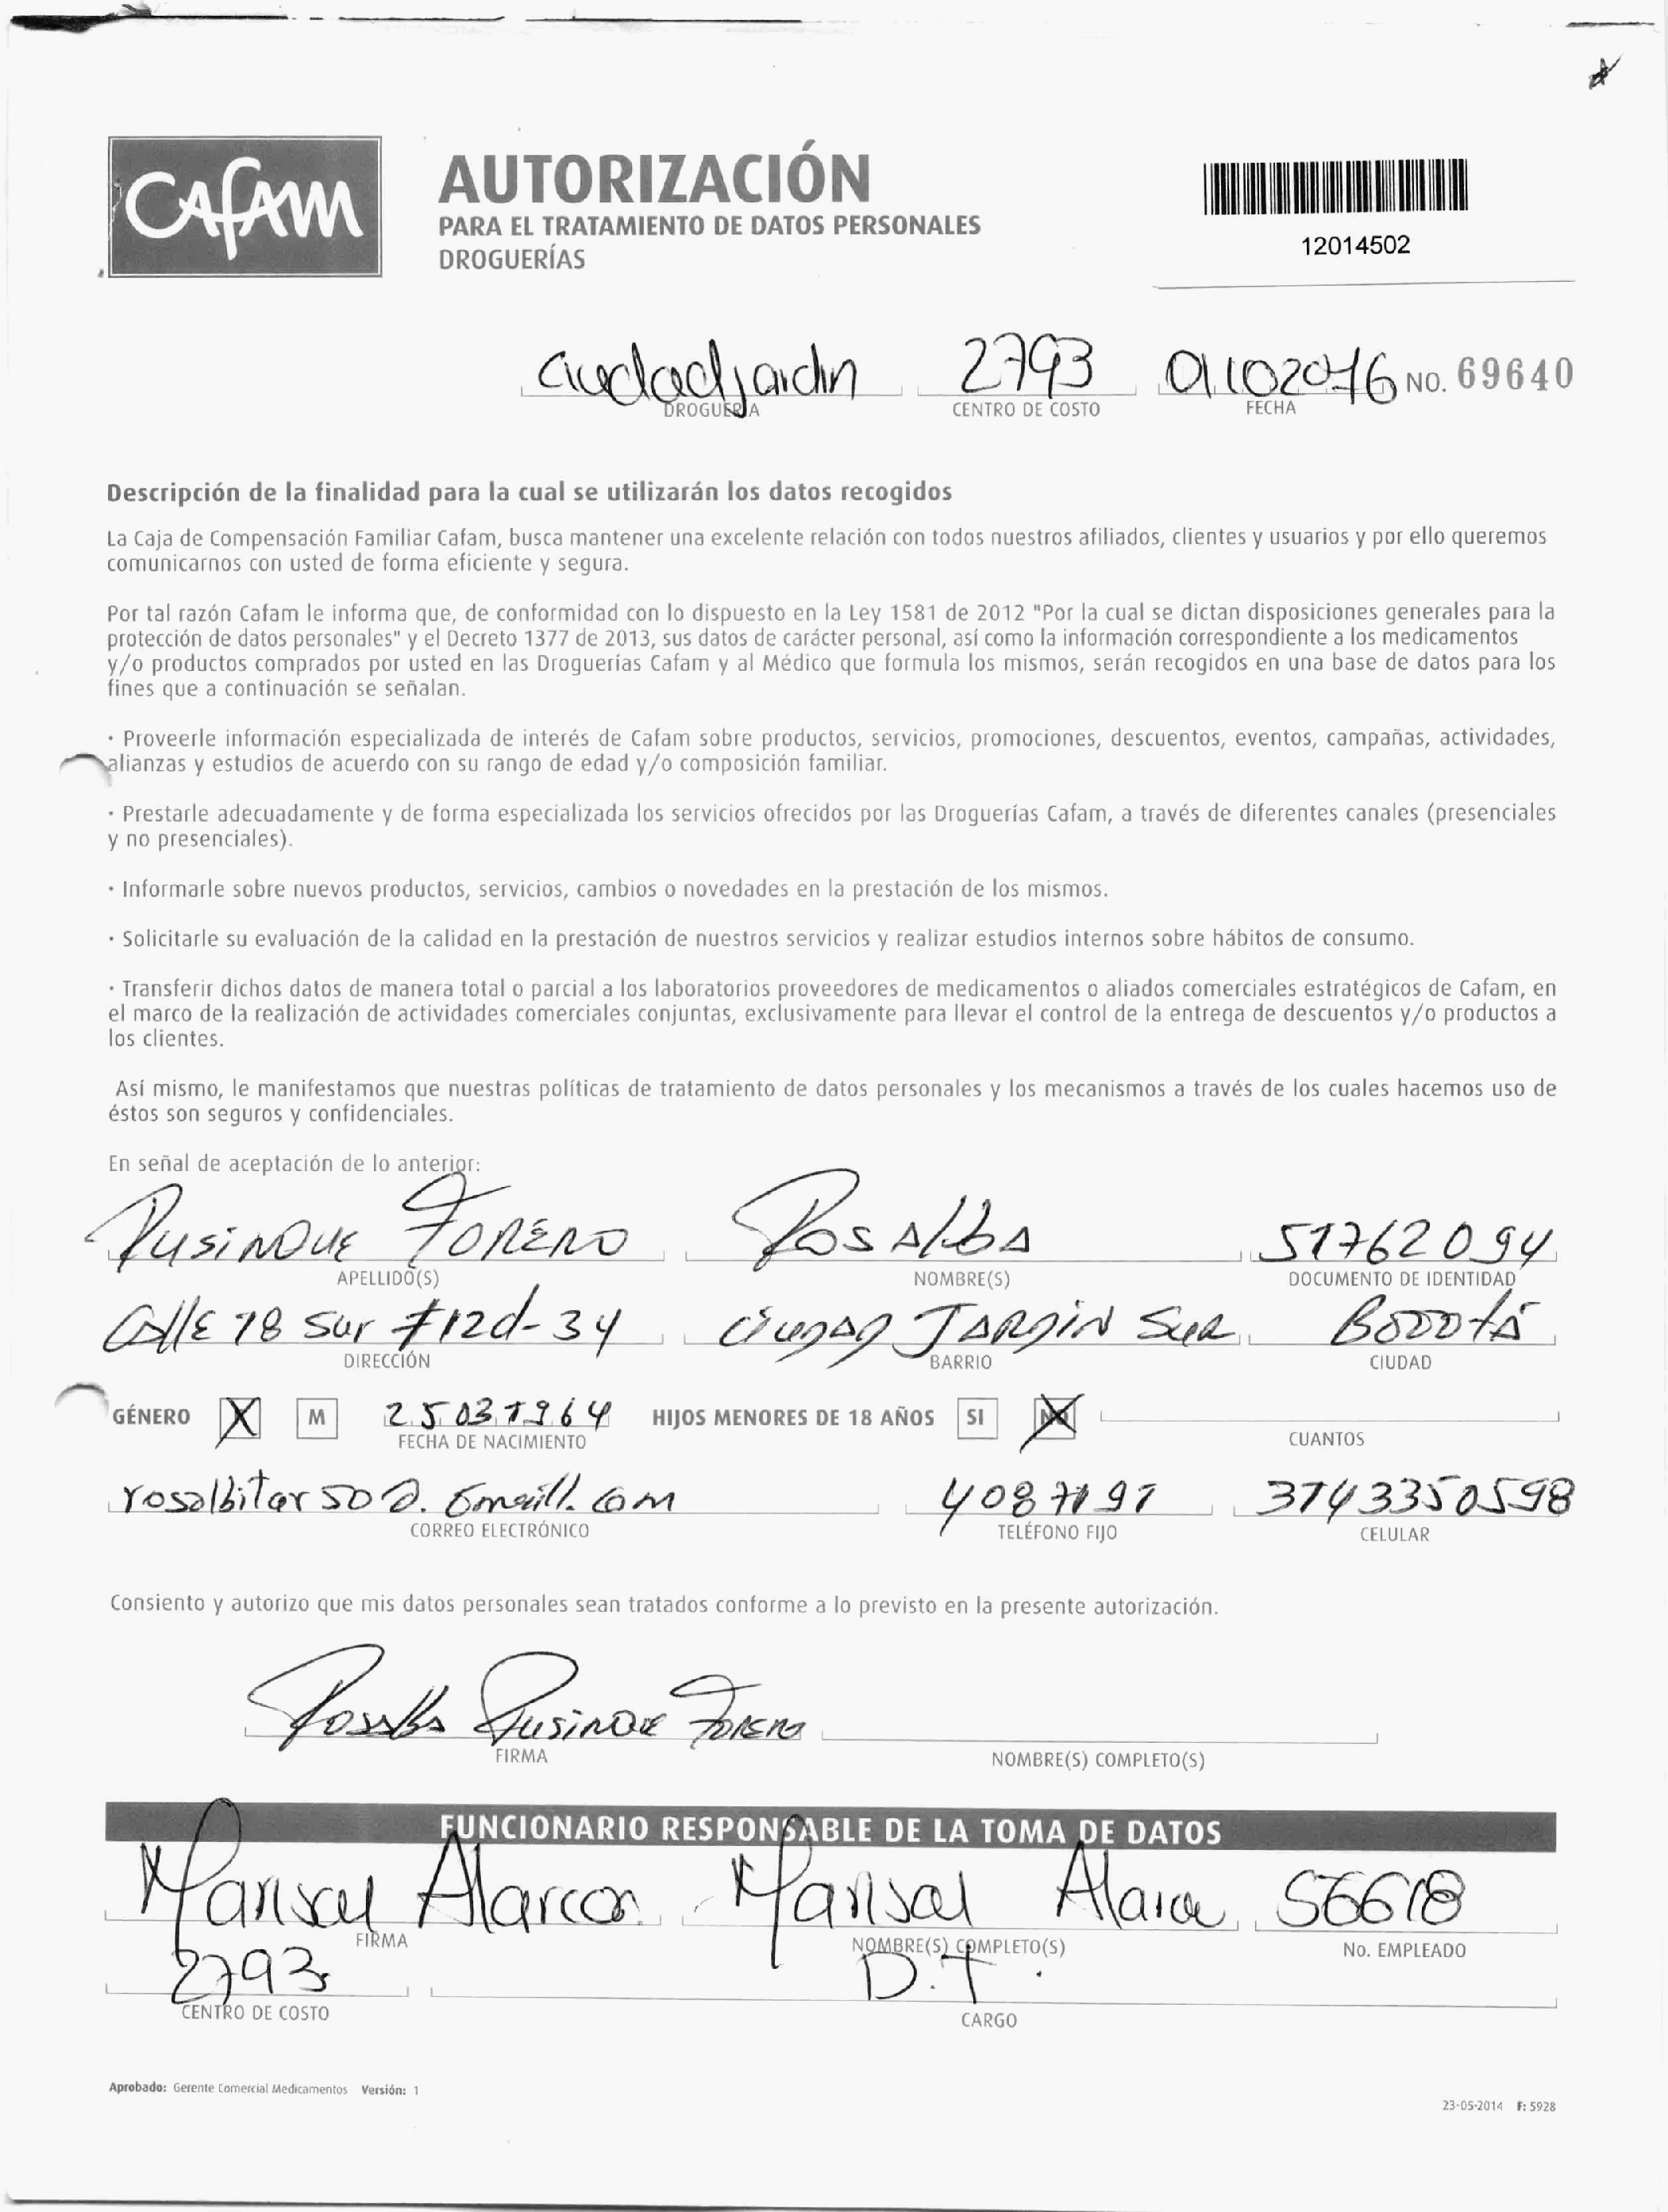 Cafam
AUTORIZACIÓN
PARA EL TRATAMIENTO DE DATOS PERSONALES
DROGUERÍAS
12014502
Ciudadjardin 2793 01102016 NO. 69640
DROGUERIA CENTRO DE COSTO FECHA
Descripción de la finalidad para la cual se utilizarán los datos recogidos
La Caja de Compensación Familiar Cafam, busca mantener una excelente relación con todos nuestros afiliados, clientes y usuarios y por ello queremos
comunicarnos con usted de forma eficiente y segura.
Por tal razón Cafam le informa que, de conformidad con lo dispuesto en la Ley 1581 de 2012 "Por la cual se dictan disposiciones generales para la
protección de datos personales" y el Decreto 1377 de 2013, sus datos de carácter personal, así como la información correspondiente a los medicamentos
y/o productos comprados por usted en las Droguerías Cafam y al Médico que formula los mismos, serán recogidos en una base de datos para los
fines que a continuación se señalan.
· Proveerle información especializada de interés de Cafam sobre productos, servicios, promociones, descuentos, eventos, campañas, actividades,
alianzas y estudios de acuerdo con su rango de edad y/o composición familiar.
· Prestarle adecuadamente y de forma especializada los servicios ofrecidos por las Droguerías Cafam, a través de diferentes canales (presenciales
y no presenciales).
· Informarle sobre nuevos productos, servicios, cambios o novedades en la prestación de los mismos.
· Solicitarle su evaluación de la calidad en la prestación de nuestros servicios y realizar estudios internos sobre hábitos de consumo.
· Transferir dichos datos de manera total o parcial a los laboratorios proveedores de medicamentos o aliados comerciales estratégicos de Cafam, en
el marco de la realización de actividades comerciales conjuntas, exclusivamente para llevar el control de la entrega de descuentos y/o productos a
los clientes.
Así mismo, le manifestamos que nuestras políticas de tratamiento de datos personales y los mecanismos a través de los cuales hacemos uso de
éstos son seguros y confidenciales.
En señal de aceptación de lo anterior:
Rusinque Forero Rosalba 51762094
APELLIDO(S) NOMBRE(S) DOCUMENTO DE IDENTIDAD
Calle 18 sur #12d-34 Ciudad Jardin Sur Bogotá
DIRECCIÓN BARRIO CIUDAD
GÉNERO X M 25031964 HIJOS MENORES DE 18 AÑOS SI NO
FECHA DE NACIMIENTO CUANTOS
4087197 3143350598
CORREO ELECTRÓNICO TELÉFONO FIJO CELULAR
Consiento y autorizo que mis datos personales sean tratados conforme a lo previsto en la presente autorización.
Rosalba Rusinque Forero
FIRMA NOMBRE(S) COMPLETO(S)
FUNCIONARIO RESPONSABLE DE LA TOMA DE DATOS
Marisol Alarcon Marisol Alarcon 56618
FIRMA NOMBRE(S) COMPLETO(S) No. EMPLEADO
2793 D.T.
CENTRO DE COSTO CARGO
Aprobado: Gerente Comercial Medicamentos Versión: 1
23-05-2014 F: 5928